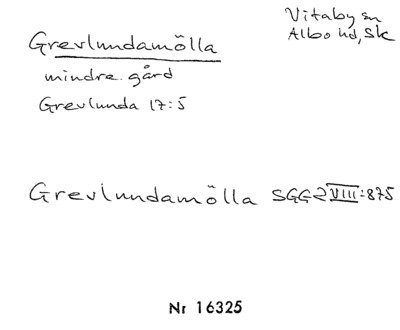 Grevlundamölla
Vitaby sn
Albo hd, Sk
mindre gård
Grevlunda 17:5
Grevlundamölla SGG2 VIII:875
Nr 16325